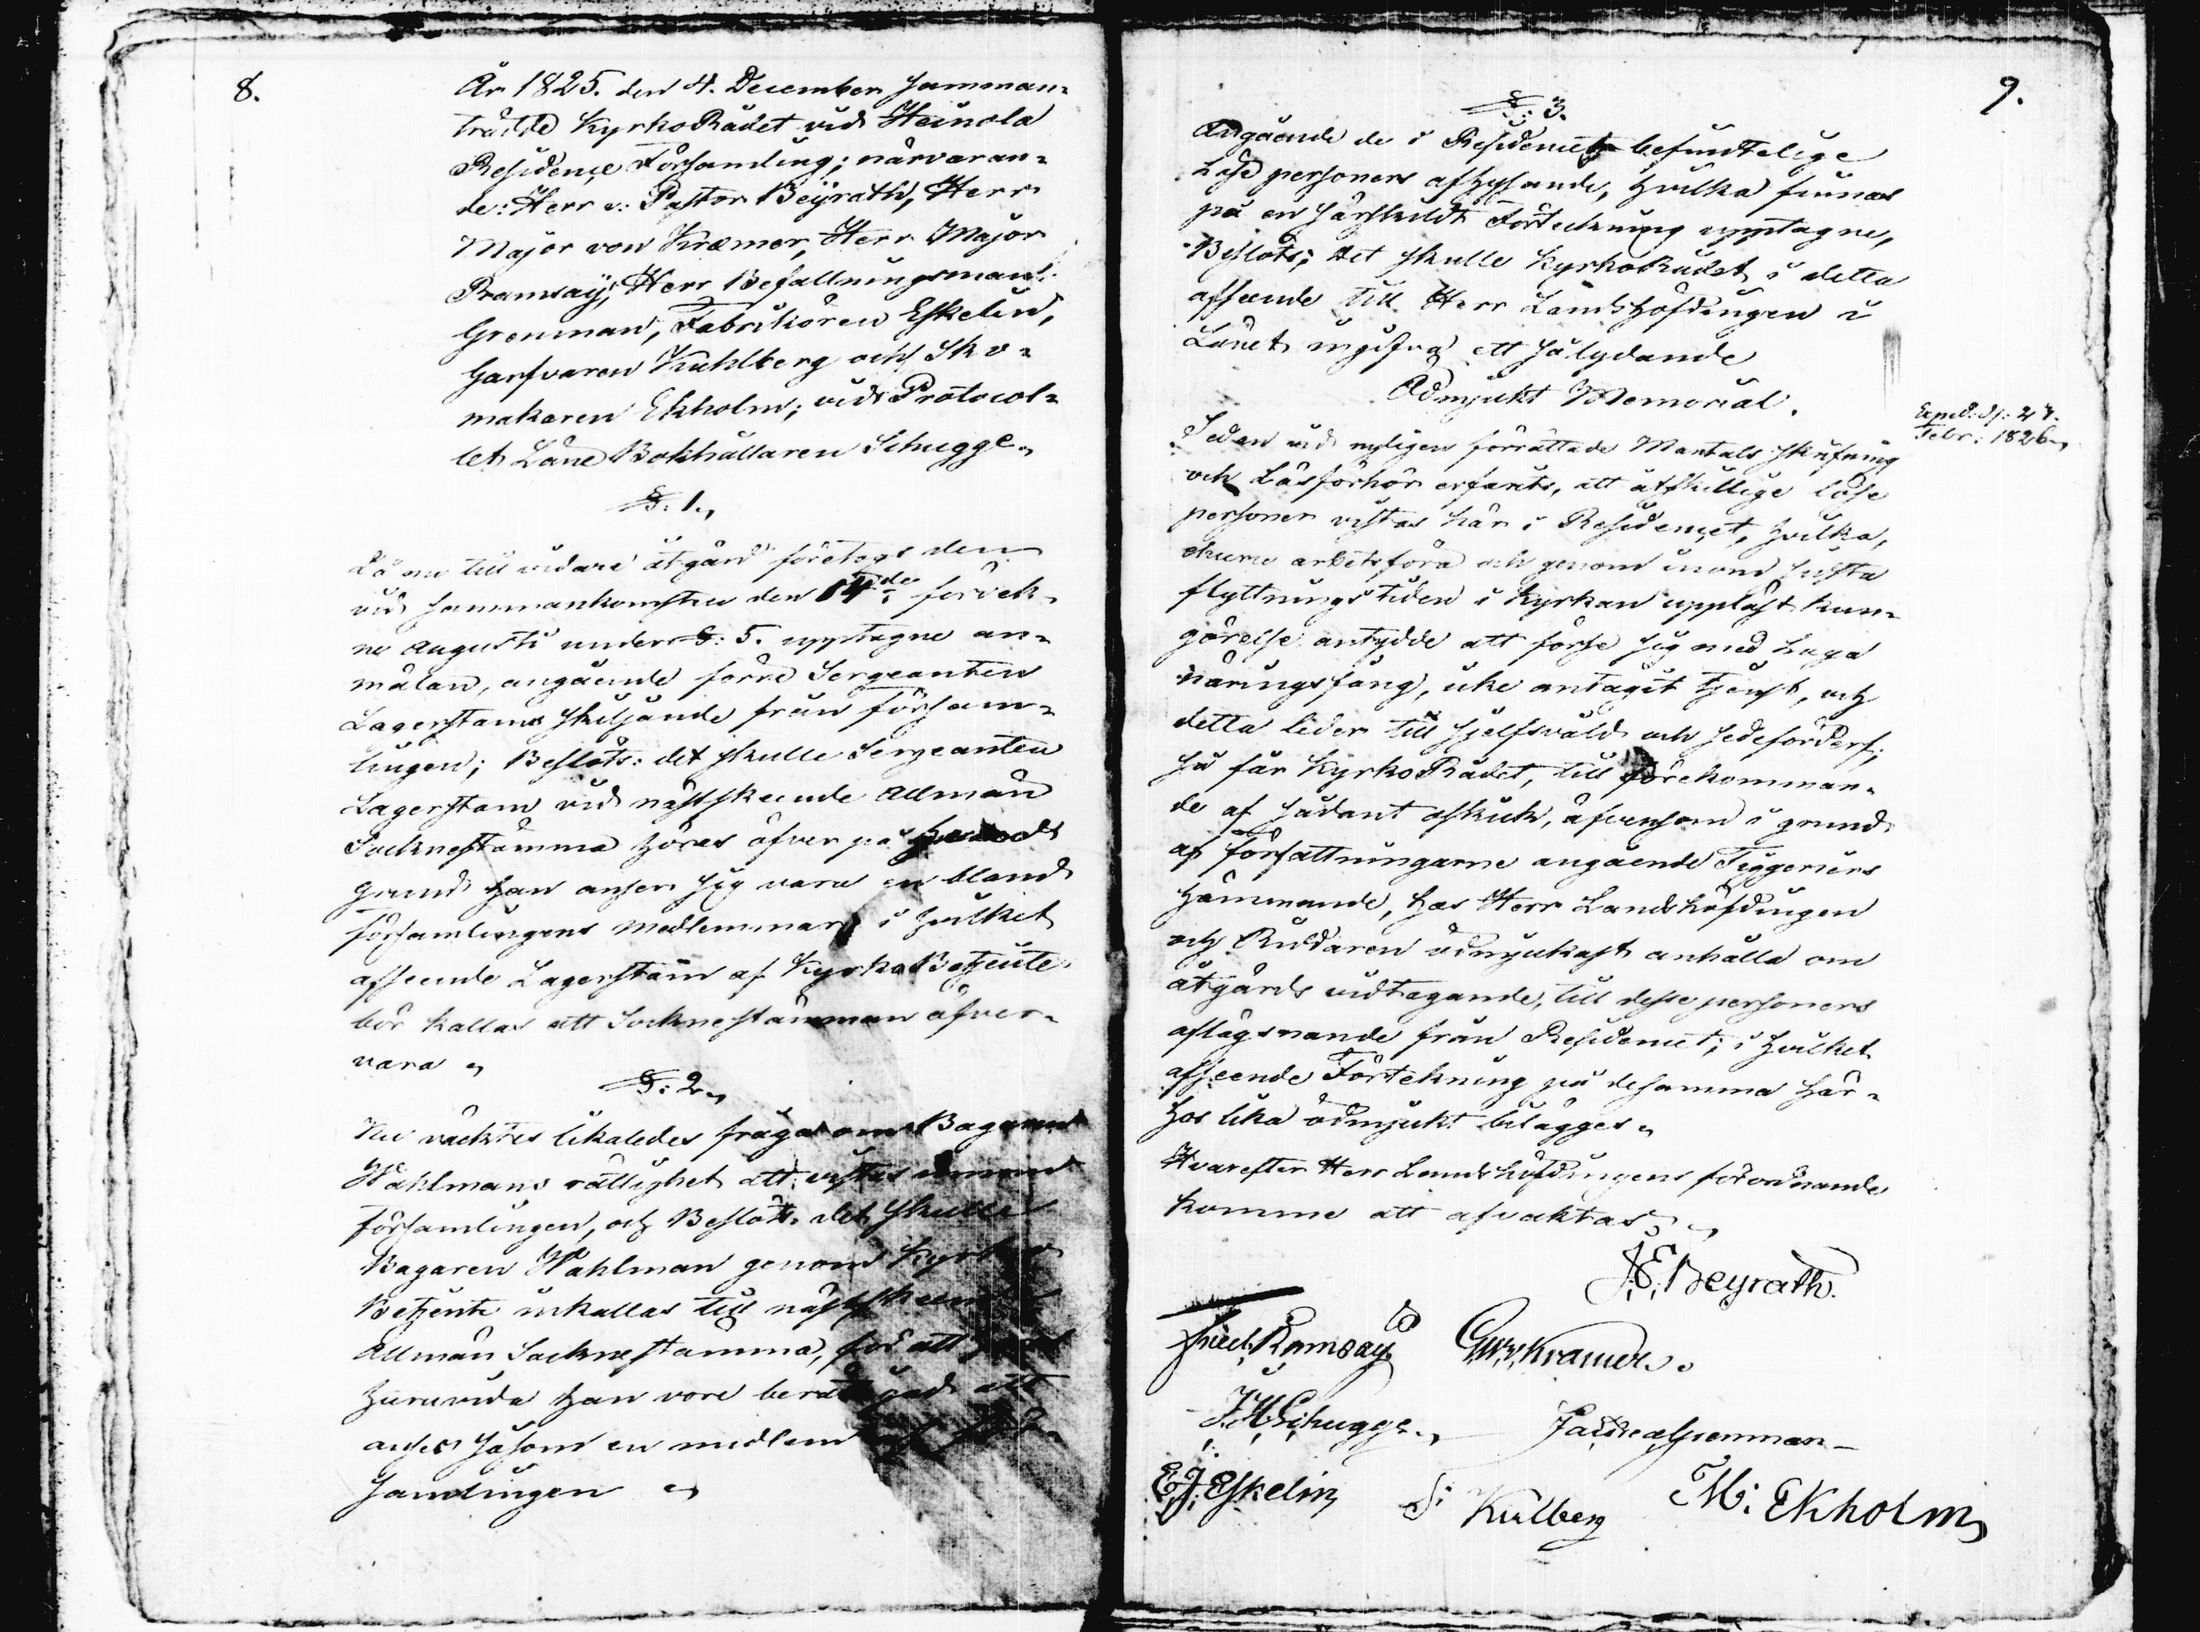 8.
År 1825. den 4. December samman-
trädde KyrkoRådet vid Heinola
Residence Församling; närvaran-
de: Herr v: Pastor Beyrath, Herr
Major von Kræmer, Herr Major
Ramsay, Herr Befallningsman
Grenman, Fabrikören Eskelin,
Garfvaren Kuhlberg och Sko-
makaren Ekholm; vid Protocol-
let Läne Bokhållaren Schugge.
§. 1.
Då nu till vidare åtgärd företogs den
vid sammankomsten den 14de sidstl.
ne Augusti under §: 5. upptagne an-
mälan, angående förre Sergeanten
Lagerstams skiljande från försam-
lingen; Beslöts: det skulle Sergeanten
Lagerstam vid nästskeende allmän
Socknestämma höras öfver på
grund han anser sig vara en bland
församlingens medlemmar, i hvilket
afseende Lagerstam af KyrkoBetjente
bör kallas att Socknestämman öfver-
vara.
§: 2.
Nu väcktes likaledes fråga om Bagaren
Wahlmans rättighet att vistas inom
församlingen, och Beslöts: det skulle
Bagaren Wahlman genom Kyrko
Betjente inkallas till nästskeende
Allmän Socknestämma, för att
huruvida han vore berättigad att
anses såsom en medlem af för-
samlingen.
9.
§: 3.
Angående de i Residencet befintelige
Löse personers afhysande, hvilka finnas
på en särskildt Förteckning upptagne,
Beslöts; det skulle KyrkoRådet i detta
afseende till Herr Landshöfdingen i
Länet ingifva ett så lydande
Ödmjukt Memorial.
Exped: d: 27.
Febr: 1826.
Sedan vid nyligen förrättade Mantals skrifning
och Läsförhör erfarits, att åtskillige löse
personer vistas här i Residencet, hvilka,
ehuru arbetsföra och genom inom sista
flyttningstiden i Kyrkan uppläst kun-
görelse antydde att förse sig med Laga
näringsfång, icke antagit tjenst, och
detta leder till sjelfsvåld och sedeförderf;
så får KyrkoRådet, till förekomman-
de af sådant oskick, äfvensom i grund
af författningarne angående Tiggeriers
hämmande, hos Herr Landshöfdingen
och Riddaren ödmjukast anhålla om
åtgärds vidtagande, till desse personers
aflägsnande från Residencet; i hvilket
afseende Förtekning på desamma här-
hos lika ödmjukt bilägges.
Hvarefter Herr Landshöfdingens förordnande
komme att afvaktas.
J.E. Beyrath.
Fried. Ramsay
GW v Kræmer.
J.H. Schugge.
Grenman
E.J. Eskelin,
S: Kulberg
M: Ekholm